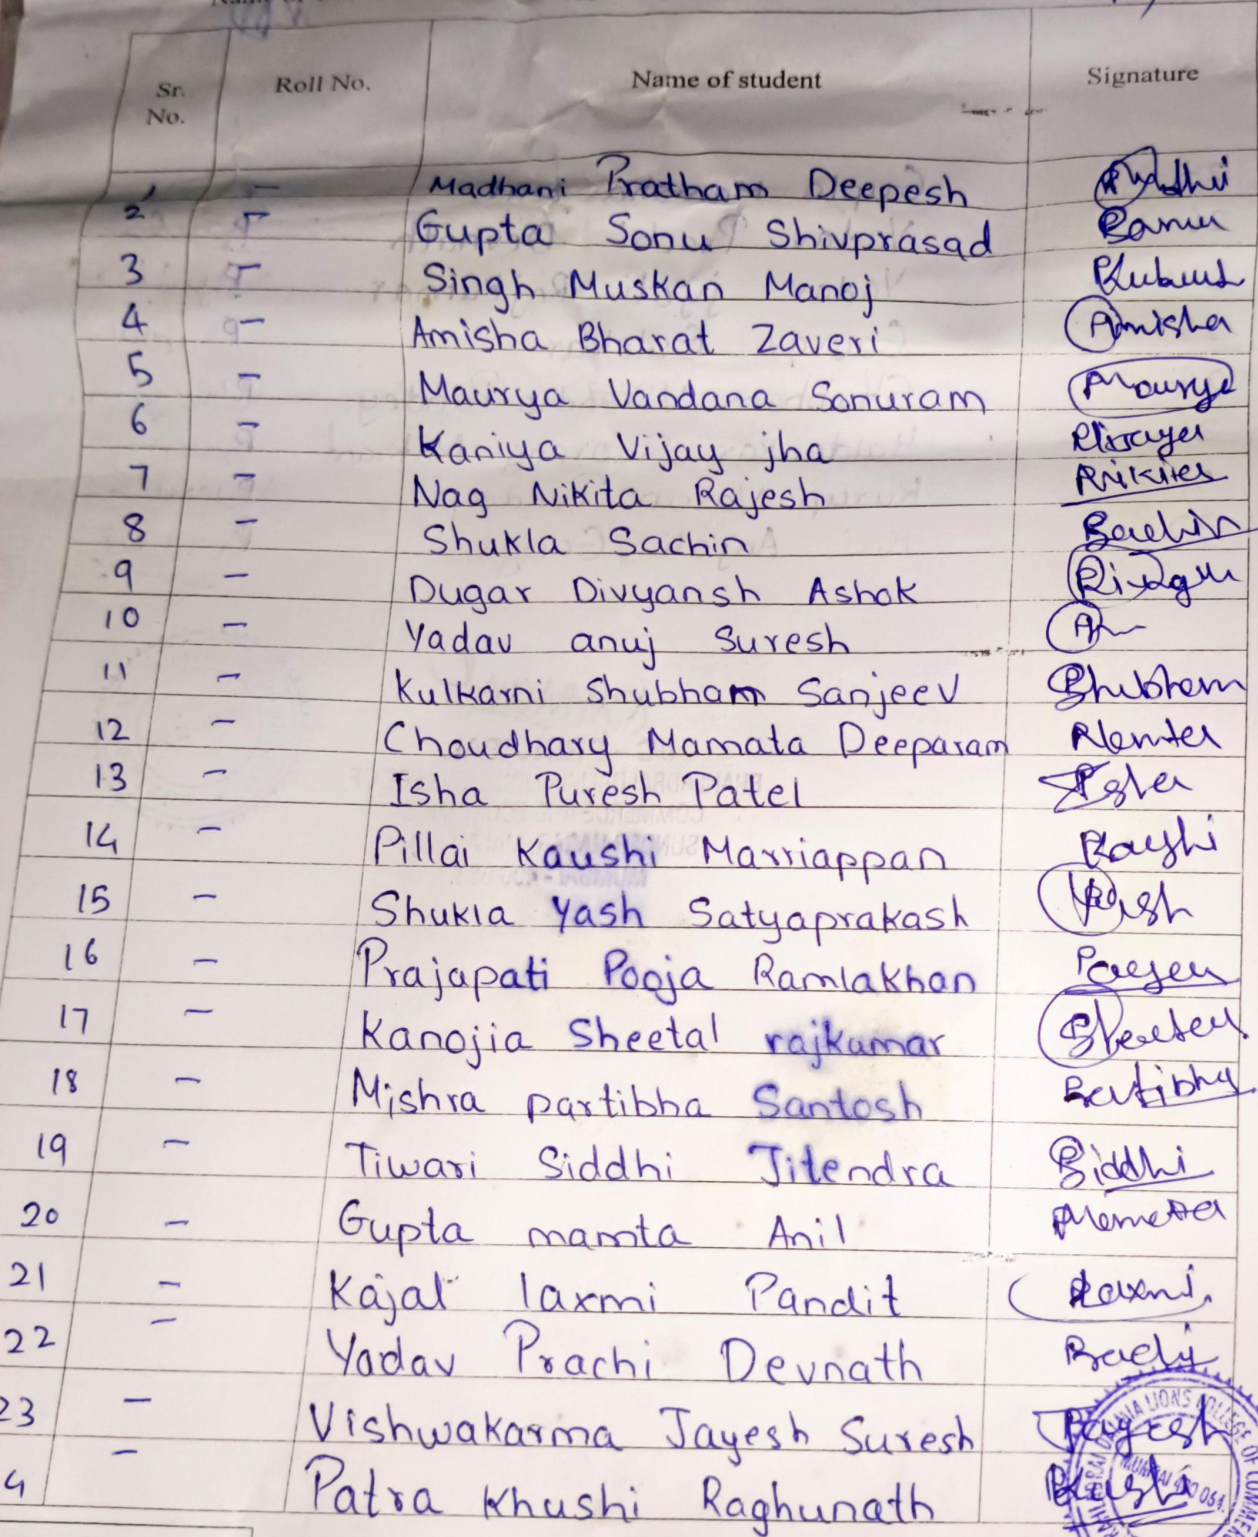 Sr. No. Roll No. Name of student Signature
1 - Madhani Pratham Deepesh
2 - Gupta Sonu Shivprasad
3 - Singh Muskan Manoj
4 - Amisha Bharat Zaveri Amisha
5 - Maurya Vandana Sonuram Maurya
6 - Kaniya Vijay jha
7 - Nag Nikita Rajesh
8 - Shukla Sachin Sachin
9 - Dugar Divyansh Ashok
10 - Yadav anuj Suresh
11 - Kulkarni Shubham Sanjeev Shubham
12 - Choudhary Mamata Deeparam
13 - Isha Puresh Patel Isha
14 - Pillai Kaushi Marriappan
15 - Shukla Yash Satyaprakash Yash
16 - Prajapati Pooja Ramlakhan
17 - Kanojia Sheetal rajkumar
18 - Mishra partibha Santosh
19 - Tiwari Siddhi Jitendra Siddhi
20 - Gupta mamta Anil
21 - Kajal laxmi Pandit Laxmi
22 - Yadav Prachi Devnath
23 - Vishwakarma Jayesh Suresh Jayesh
4 - Patra Khushi Raghunath
LIONS COLLEGE OF COMMER
MUMBAI 400 064.